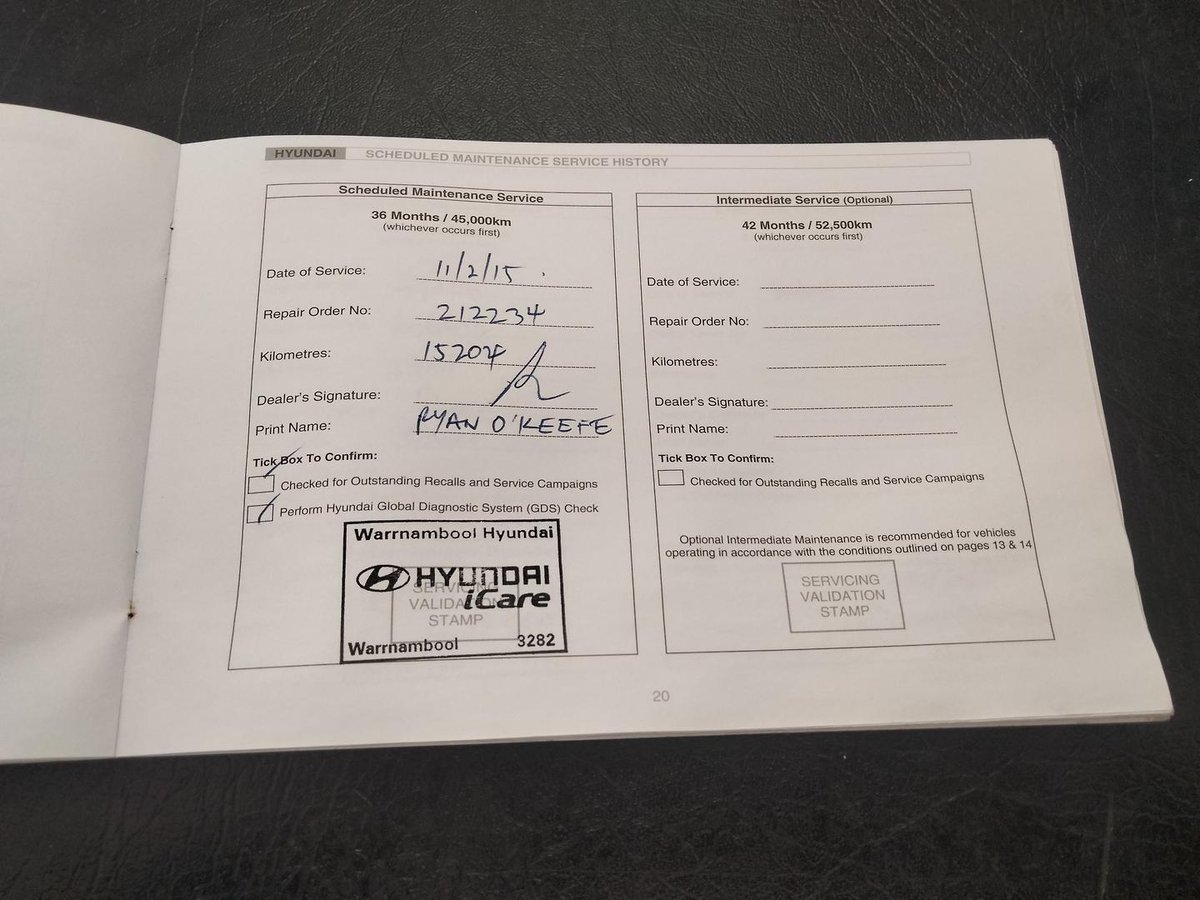 HYUNDAI SCHEDULED MAINTENANCE SERVICE HISTORY
Scheduled Maintenance Service
36 Months / 45,000km
(whichever occurs first)
Date of Service: 11/2/15
Repair Order No: 212234
Kilometres: 15204
Dealer's Signature:
Print Name: RYAN O'KEEFE
Tick Box To Confirm:
Checked for Outstanding Recalls and Service Campaigns
Perform Hyundai Global Diagnostic System (GDS) Check
Warrnambool Hyundai
HYUNDAI
iCare
SERVICING
VALIDATION
STAMP
Warrnambool 3282
Intermediate Service (Optional)
42 Months / 52,500km
(whichever occurs first)
Date of Service:
Repair Order No:
Kilometres:
Dealer's Signature:
Print Name:
Tick Box To Confirm:
Checked for Outstanding Recalls and Service Campaigns
Optional Intermediate Maintenance is recommended for vehicles
operating in accordance with the conditions outlined on pages 13 & 14
SERVICING
VALIDATION
STAMP
20